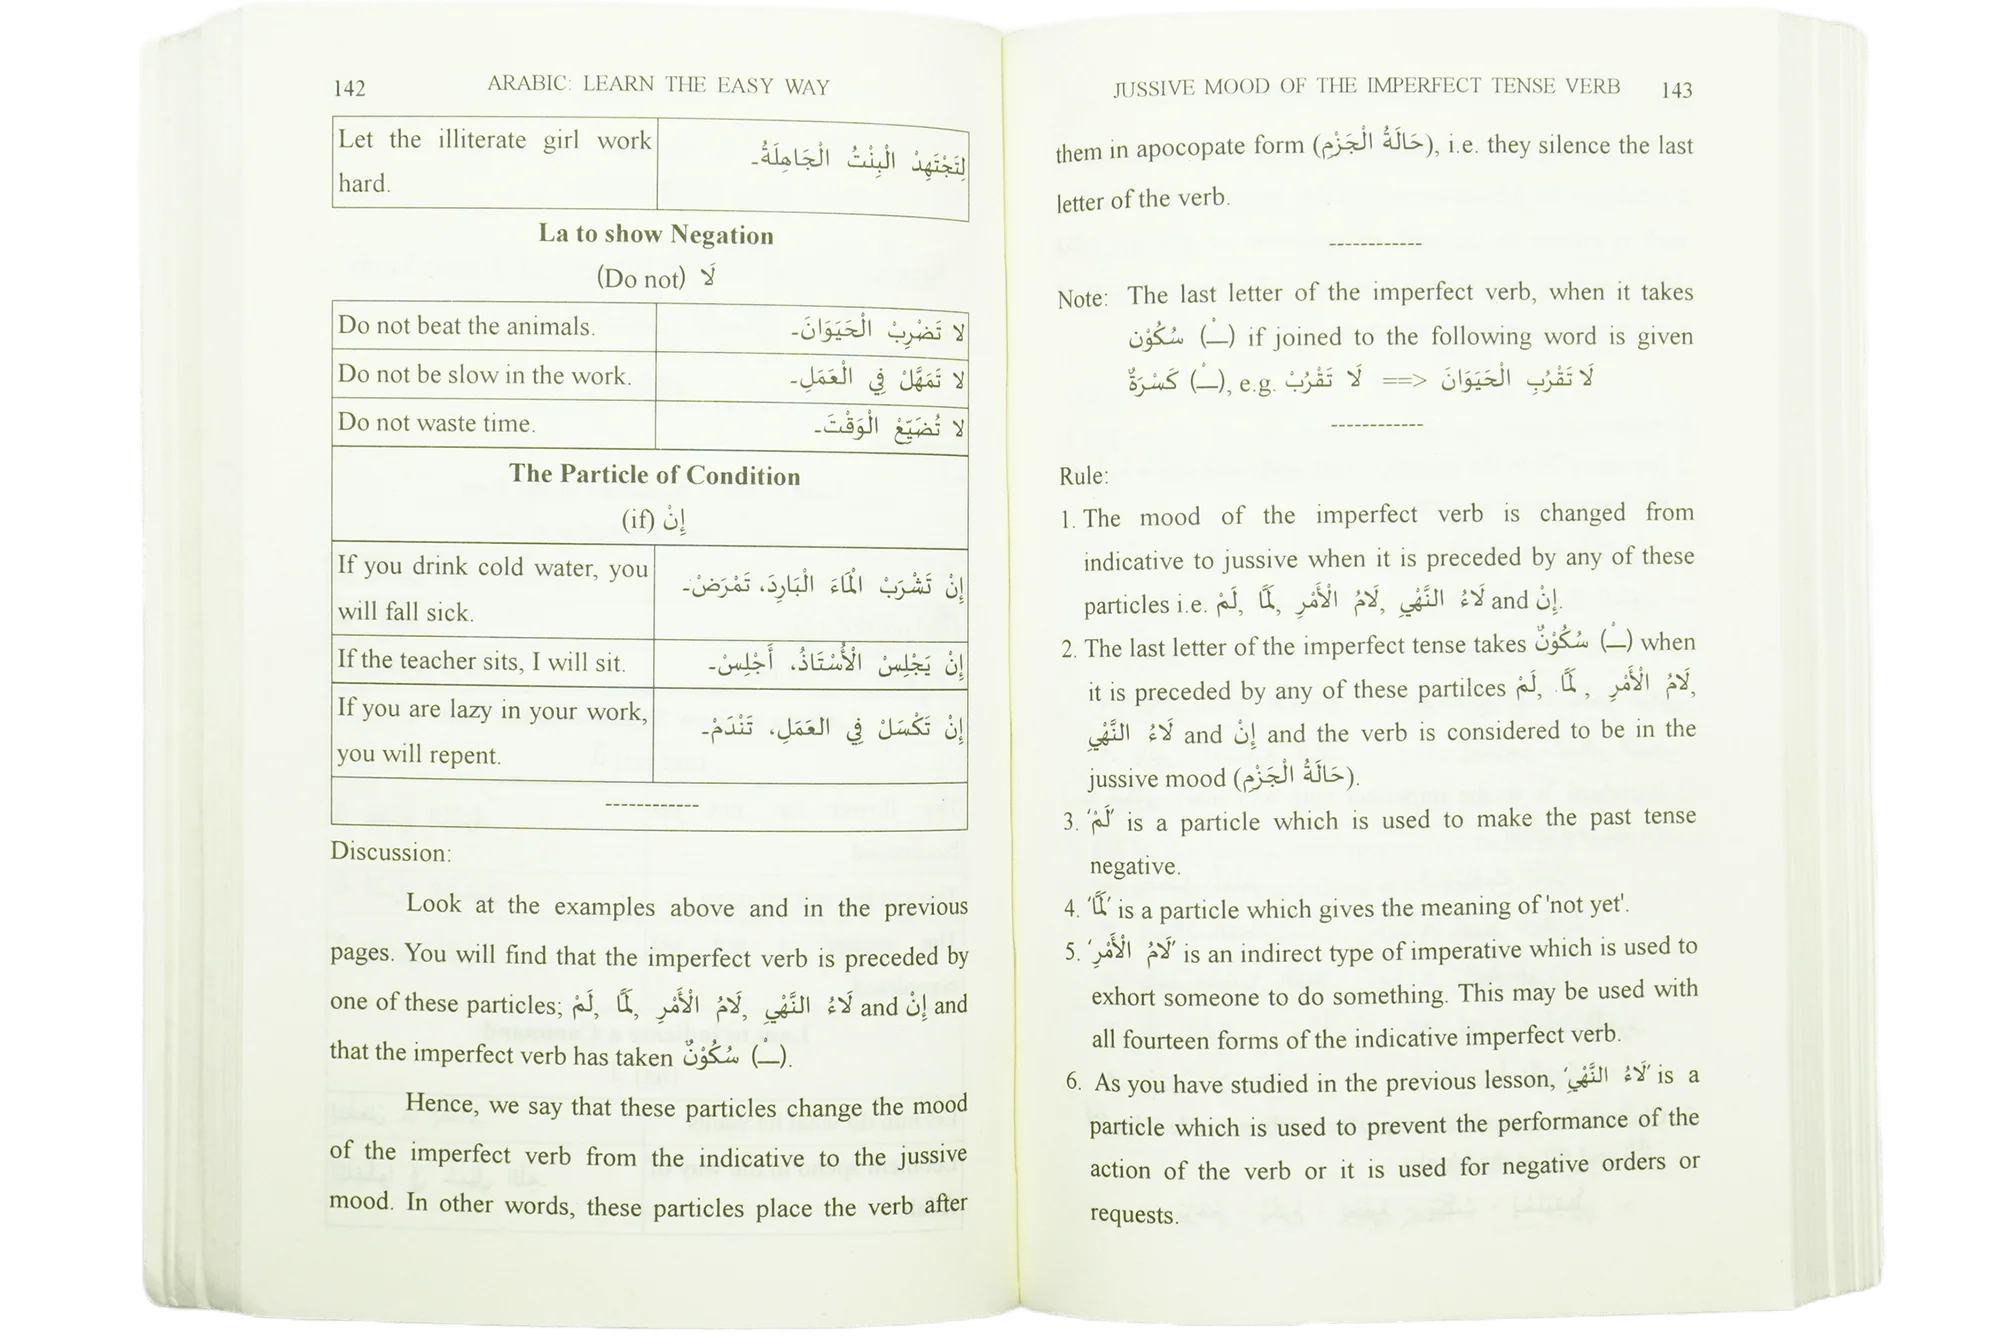 142 ARABIC: LEARN THE EASY WAY
Let the illiterate girl work لِتَجْتَهِدْ الْبِنْتُ الْجَاهِلَةُ۔
hard.
La to show Negation
(Do not) لَا
Do not beat the animals. لا تَضْرِبْ الْحَيَوَانَ۔
Do not be slow in the work. لا تَمَهَّلْ فِي الْعَمَلِ۔
Do not waste time. لا تُضَيِّعْ الْوَقْتَ۔
The Particle of Condition
(if) إِنْ
If you drink cold water, you إِنْ تَشْرَبْ الْمَاءَ الْبَارِدَ، تَمْرَضْ۔
will fall sick.
If the teacher sits, I will sit. إِنْ يَجْلِسْ الْأُسْتَاذُ، أَجْلِسْ۔
If you are lazy in your work, إِنْ تَكْسَلْ فِي العَمَلِ، تَنْدَمْ۔
you will repent.
------------
Discussion:
Look at the examples above and in the previous
pages. You will find that the imperfect verb is preceded by
one of these particles; لَمْ, لَمَّا, لَامُ الْأَمْرِ, لَاءُ النَّهْيِ and إِنْ and
that the imperfect verb has taken سُكُوْنٌ (ـْ).
Hence, we say that these particles change the mood
of the imperfect verb from the indicative to the jussive
mood. In other words, these particles place the verb after
JUSSIVE MOOD OF THE IMPERFECT TENSE VERB 143
them in apocopate form (حَالَةُ الْجَزْمِ), i.e. they silence the last
letter of the verb.
------------
Note: The last letter of the imperfect verb, when it takes
سُكُوْن (ـْ) if joined to the following word is given
كَسْرَةٌ (ـْ), e.g. لَا تَقْرُبْ ==> لَا تَقْرُبِ الْحَيَوَانَ
------------
Rule:
1. The mood of the imperfect verb is changed from
indicative to jussive when it is preceded by any of these
particles i.e. لَمْ, لَمَّا, لَامُ الْأَمْرِ, لَاءُ النَّهْيِ and إِنْ.
2. The last letter of the imperfect tense takes سُكُوْنٌ (ـْ) when
it is preceded by any of these partilces لَمْ, لَمَّا , لَامُ الْأَمْرِ,
لَاءُ النَّهْيِ and إِنْ and the verb is considered to be in the
jussive mood (حَالَةُ الْجَزْمِ).
3. 'لَمْ' is a particle which is used to make the past tense
negative.
4. 'لَمَّا' is a particle which gives the meaning of 'not yet'.
5. 'لَامُ الْأَمْرِ' is an indirect type of imperative which is used to
exhort someone to do something. This may be used with
all fourteen forms of the indicative imperfect verb.
6. As you have studied in the previous lesson, 'لَاءُ النَّهْيِ' is a
particle which is used to prevent the performance of the
action of the verb or it is used for negative orders or
requests.